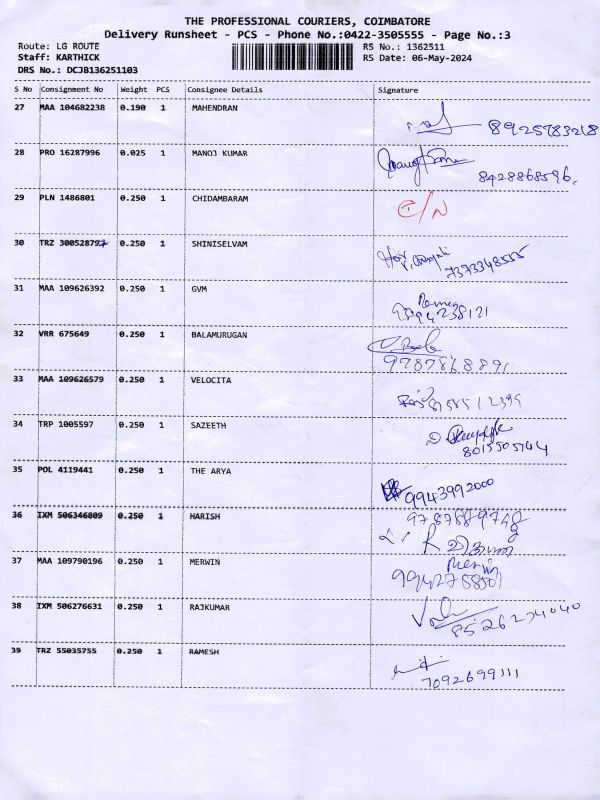 THE PROFESSIONAL COURIERS, COIMBATORE
Delivery Runsheet - PCS - Phone No.:0422-3505555 - Page No.:3
Route: LG ROUTE RS No.: 1362511
Staff: KARTHICK RS Date: 06-May-2024
DRS No.: DCJB136251103
S No Consignment No Weight PCS Consignee Details Signature
27 MAA 104682238 0.190 1 MAHENDRAN
8925783218
28 PRO 16287996 0.025 1 MANOJ KUMAR
8428868596.
29 PLN 1486801 0.250 1 CHIDAMBARAM
C/N
30 TRZ 300528797 0.250 1 SHINISELVAM
7373348555
31 MAA 109626392 0.250 1 GVM
32 VRR 675649 0.250 1 BALAMURUGAN
9787868891
33 MAA 109626579 0.250 1 VELOCITA
34 TRP 1005597 0.250 1 SAZEETH
35 POL 4119441 0.250 1 THE ARYA
9943992000
36 IXM 506346809 0.250 1 HARISH
37 MAA 109790196 0.250 1 MERWIN
Merwin
38 IXM 506276631 0.250 1 RAJKUMAR
8526234040
39 TRZ 55035755 0.250 1 RAMESH
7092699111